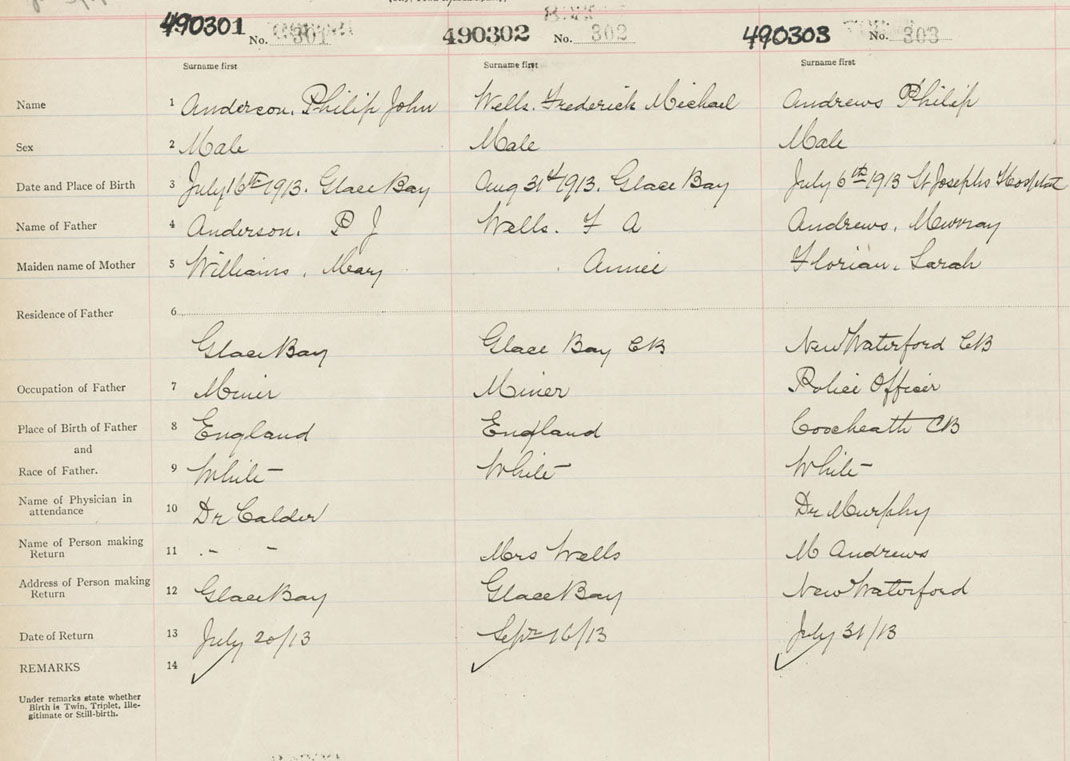 490301 No. 301 490302 No. 302 490303 No. 303
Surname first Surname first Surname first
Name 1 Anderson, Philip John Wells. Frederick Michael Andrews Philip
Sex 2 Male Male Male
Date and Place of Birth 3 July 16th 1913. Glace Bay Aug 31st 1913. Glace Bay July 6th 1913 St Josephs Hospital
Name of Father 4 Anderson. P J Wells. F A Andrews, Murray
Maiden name of Mother 5 Williams, Mary Annie Florian, Sarah
Residence of Father 6
Glace Bay Glace Bay CB New Waterford CB
Occupation of Father 7 Miner Miner Police Officer
Place of Birth of Father 8 England England Coxheath CB
and
Race of Father. 9 White White White
Name of Physician in
attendance 10 Dr Calder Dr Murphy
Name of Person making
Return 11 " - - Mrs Wells M Andrews
Address of Person making
Return 12 Glace Bay Glace Bay New Waterford
Date of Return 13 July 20/13 Sept 16/13 July 31/13
REMARKS 14
Under remarks state whether
Birth is Twin, Triplet, Ille-
gitimate or Still-birth.